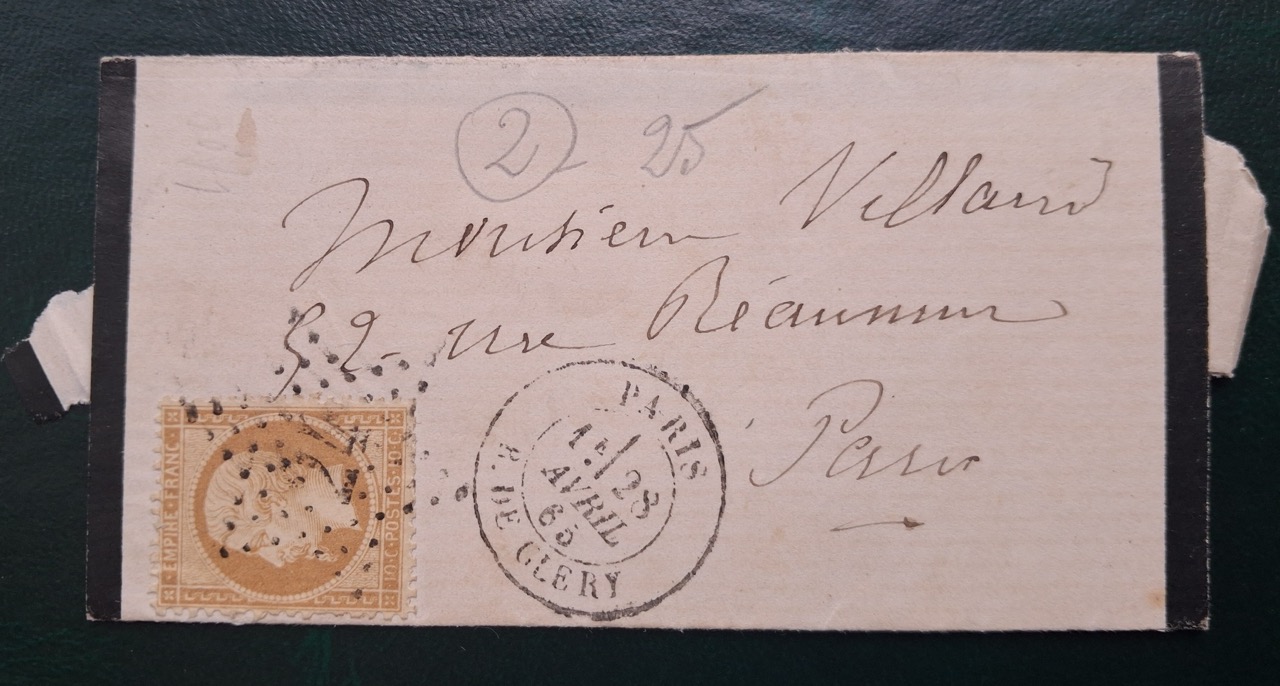 2 25
Monsieur Villard
52 rue Réaumur
Paris
EMPIRE·FRANC·
10·C·POSTES·10·C
PARIS
1E/ 28
AVRIL
65
R. DE CLERY